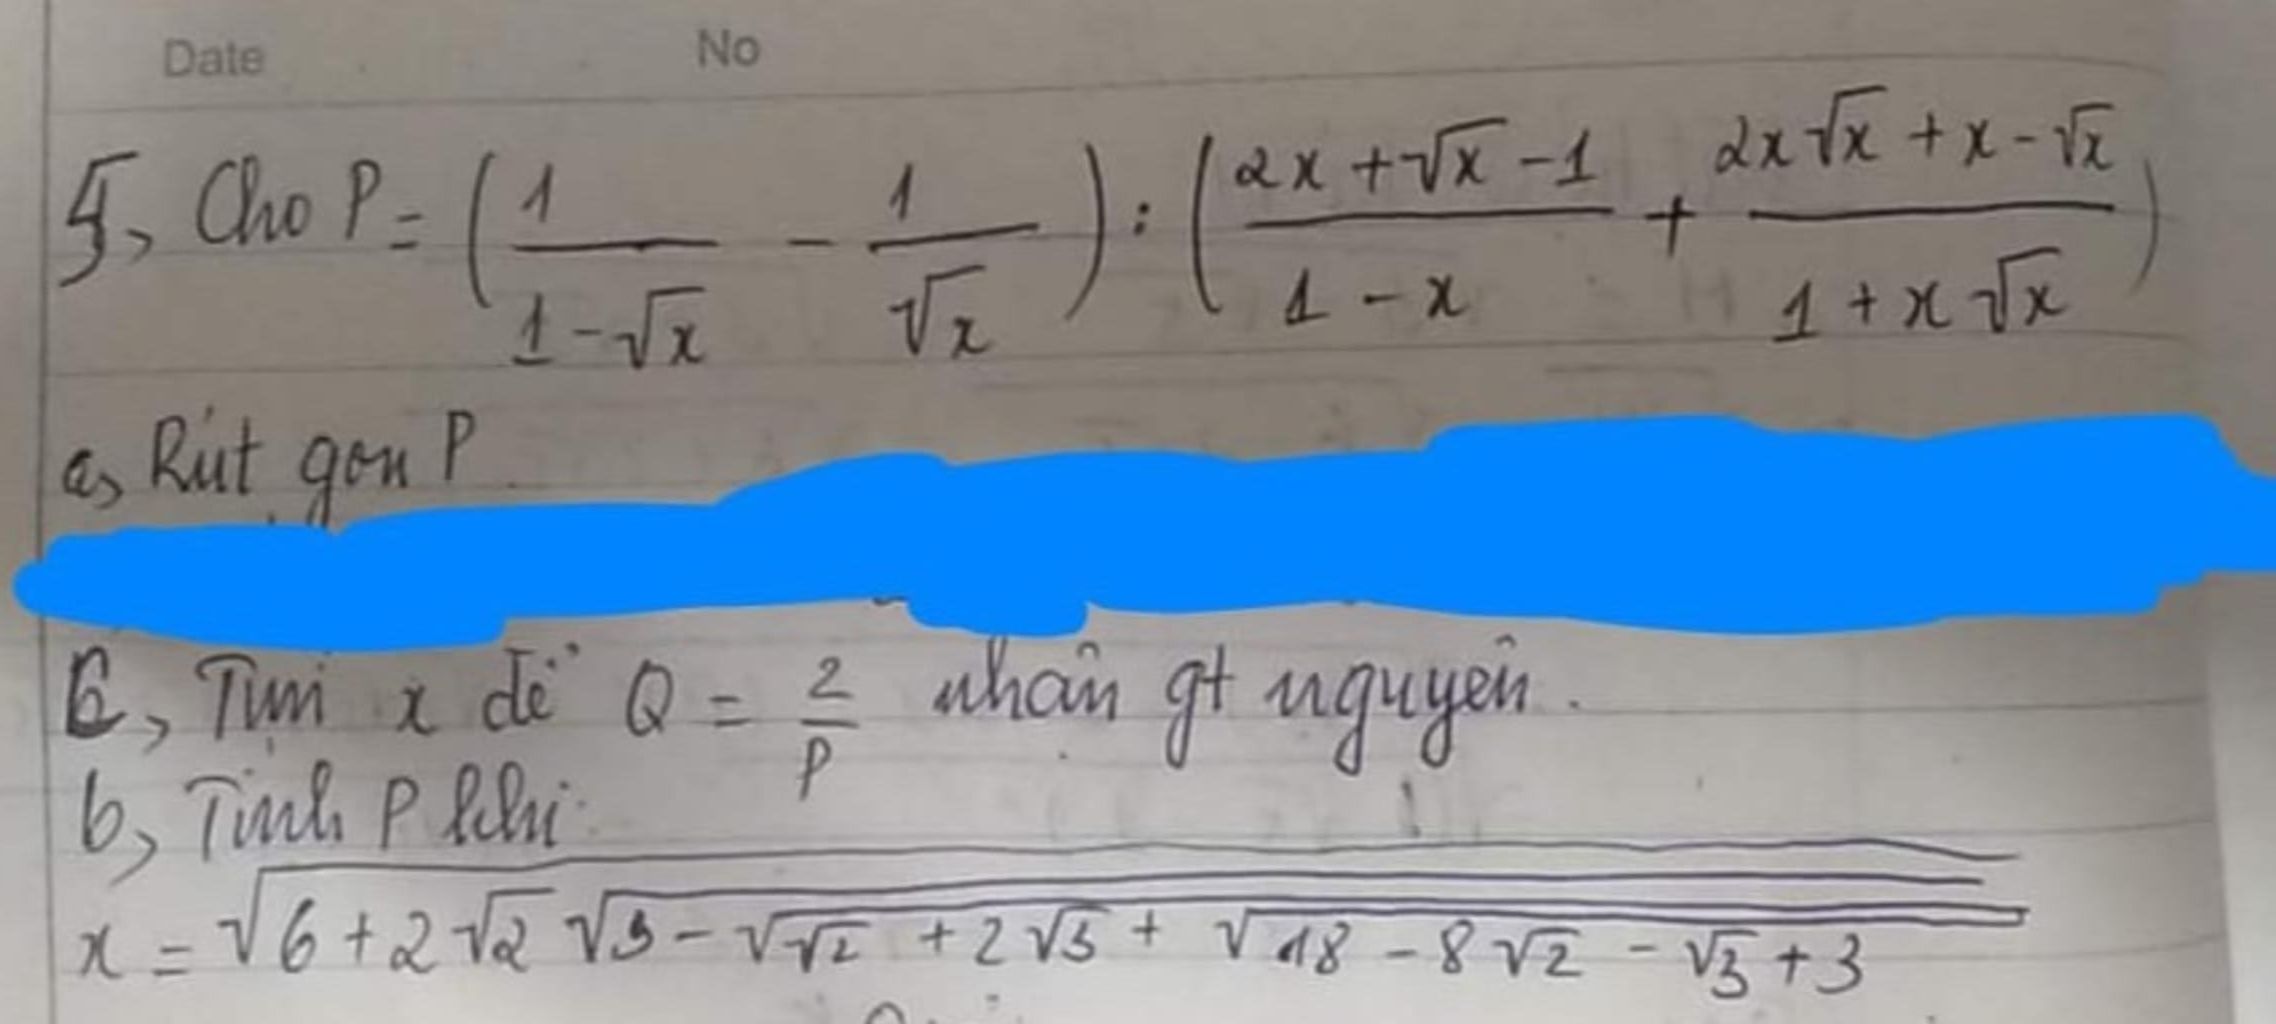 Date No
5, Cho P = (1/(1-√x) - 1/√x) : ((2x+√x-1)/(1-x) + (2x√x+x-√x)/(1+x√x))
a, Rút gọn P
c, Tìm x để Q = 2/P nhận gt nguyên.
b, Tính P khi
x = √6+2√2 √3-√√2 +2√3 + √18-8√2 - √3+3